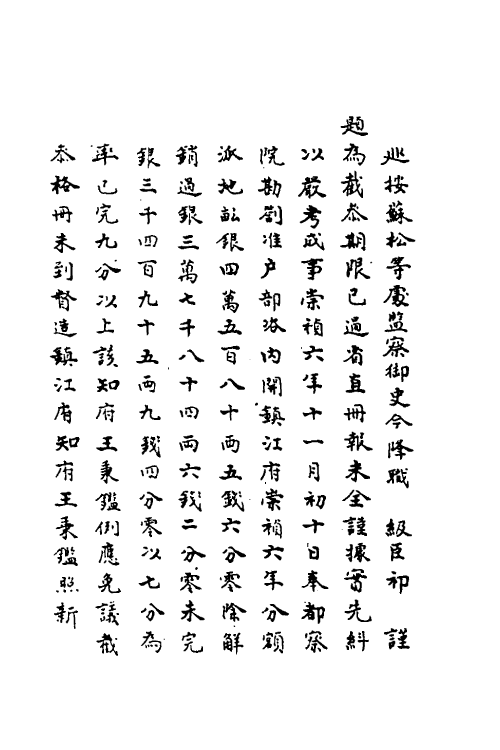 巡按蘇松等處監察御史今降職　級臣祁　謹
題為截参期限已過省直冊報未全謹據實先糾
以嚴考成事崇禎六年十一月初十日奉都察
院勘劄准户部咨内開鎮江府崇禎六年分額
派地畝銀四萬五百八十両五錢六分零除解
銷過銀三萬七千八十四両六錢二分零未完
銀三千四百九十五両九錢四分零以七分為
率已完九分以上該知府王秉鑑例應免議截
参格冊未到督造鎮江府知府王秉鑑照新